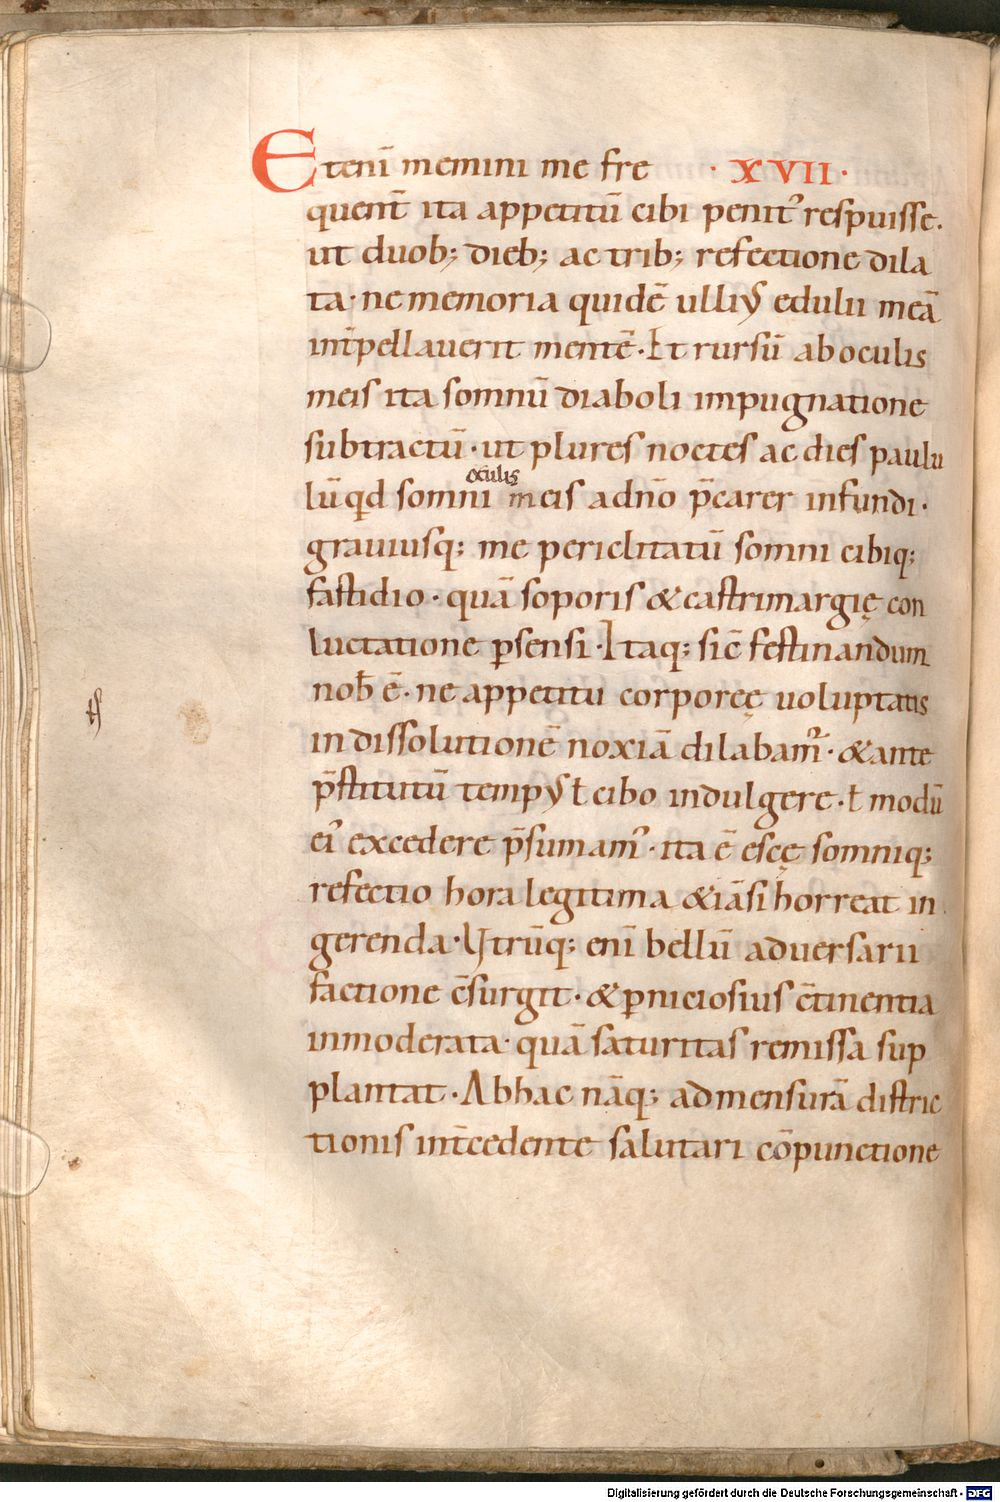 Etenī memini me fre · XVII ·
quent̄ ita appetitū cibi penit᾽ respuisse.
ut duob; dieb; ac trib; refectione dila
ta· ne memoria quidē ulliꝰ edulii meā
int̄pellauerit mentē· Et rursū ab oculis
meis ita somnū diaboli impugnatione
subtractū· ut plures noctes ac dies paulu
oculis
lū qđ somni meis ad nō p̄carer infundi·
grauiusq; me periclitatū somni cibiq;
fastidio· quā soporis & castrimargię con
luctatione p̄sensi· Itaq; sic̄ festinandum
nob̄ ē· ne appetitu corporeę uoluptatis
in dissolutionē noxiā dilabam᾽· & ante
p̄stitutū tempꝰ ł cibo indulgere· ł modū
ei᾽ excedere p̄sumam᾽· ita ē escę somniq;
refectio hora legitima & iā si horreat in
gerenda· Utrūq; enī bellū aduersarii
factione c̄surgit· & ꝑniciosius c̄tinentia
inmoderata· quā saturitas remissa sup
plantat· Ab hac nāq; ad mensurā distric
tionis int̄cedente salutari cōpunctione
Digitalisierung gefördert durch die Deutsche Forschungsgemeinschaft - DFG